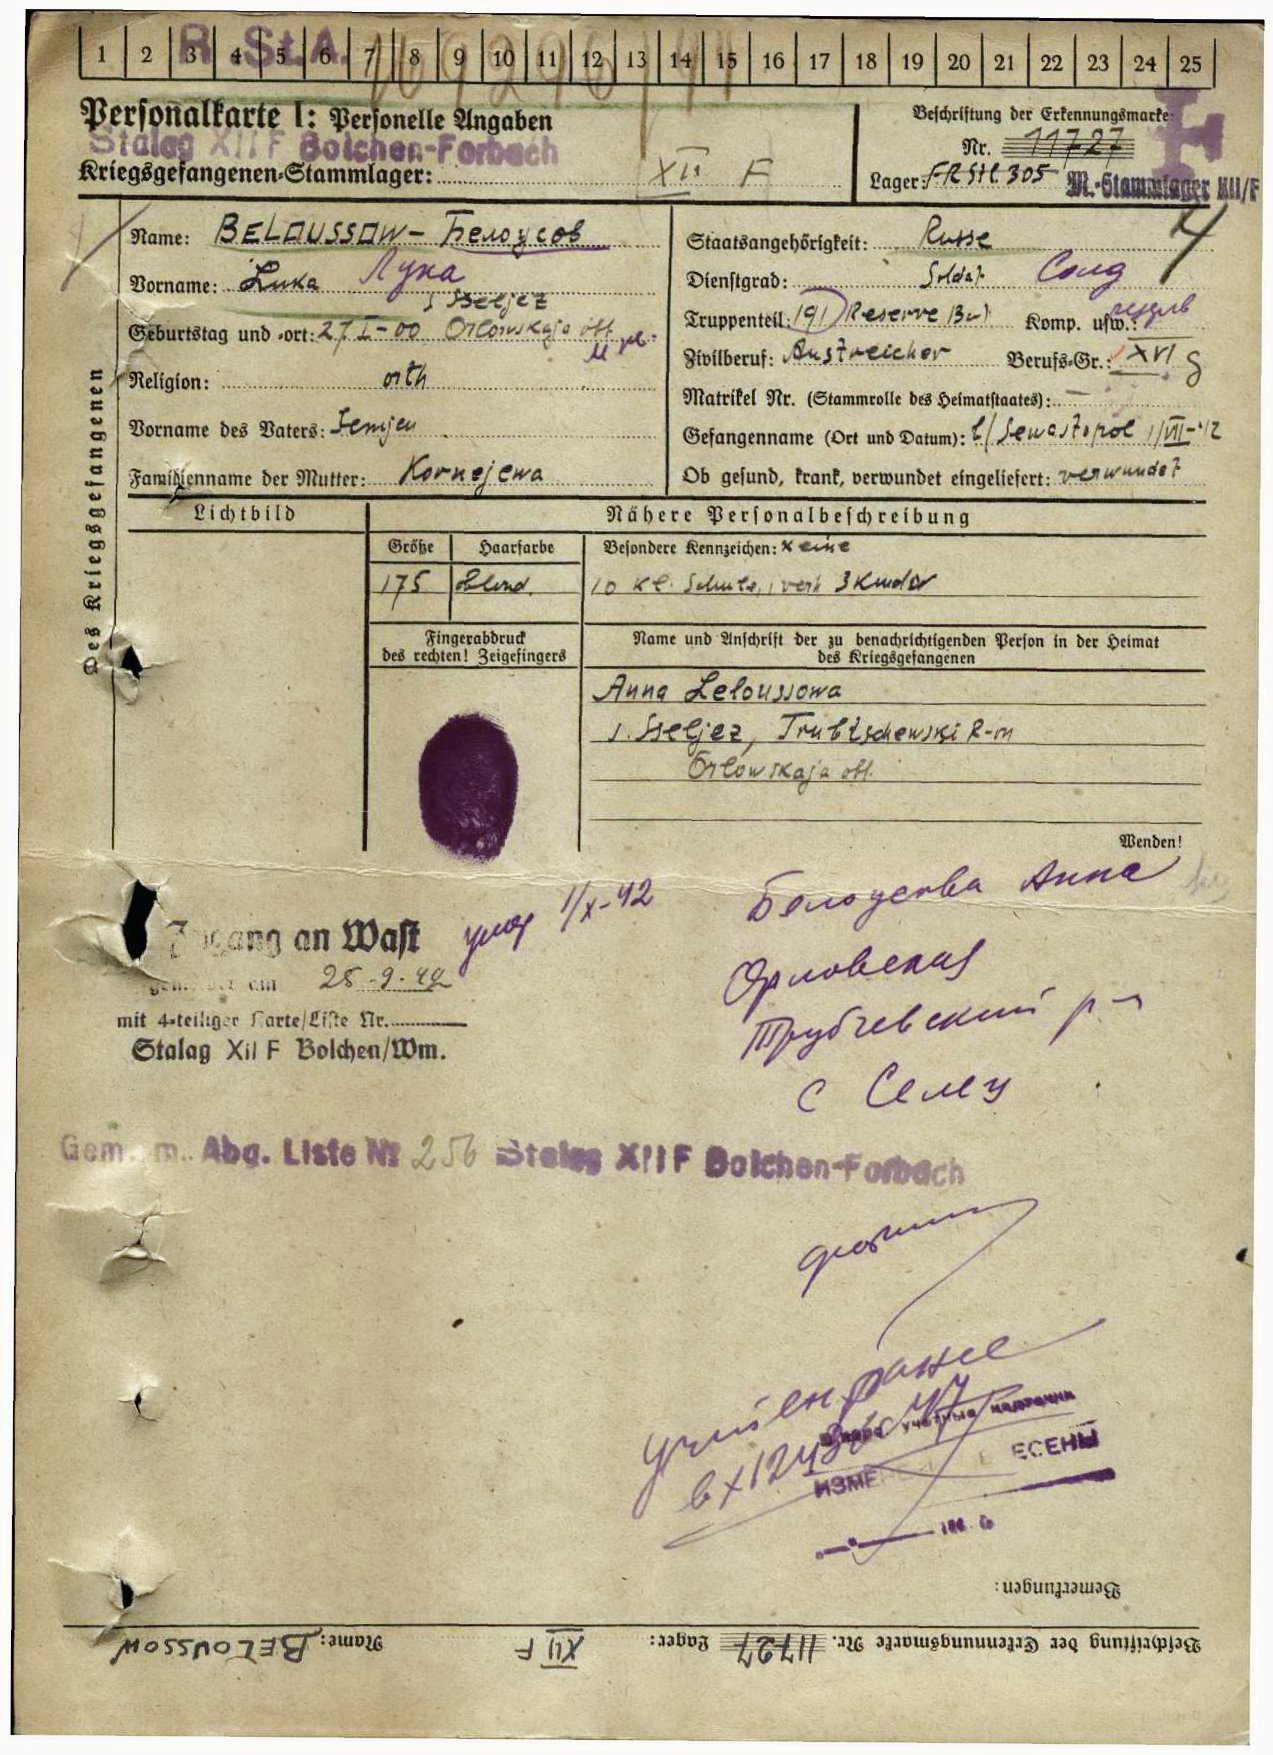 1 2 3 4 5 6 7 8 9 10 11 12 13 14 15 16 17 18 19 20 21 22 23 24 25
R.St.A.
Personalkarte I: Personelle Angaben
Stalag XII F Bolchen-Forbach
Kriegsgefangenen-Stammlager: XII F
Beschriftung der Erkennungsmarke
Nr. 11727
Lager: FR Stl. 305 M.-Stammlager XII/F
Des Kriegsgefangenen
Name: BELOUSSOW - Белоусов
Vorname: Luka Лука
s Sseljez
Geburtstag und -ort: 27 I-00 Orlowskaja obl.
Religion: orth
Vorname des Vaters: Semjen
Familienname der Mutter: Kornejewa
Staatsangehörigkeit: Russe
Dienstgrad: Soldat Солд
Truppenteil: 191 Reserve Bat Komp. usw.: резерв
Zivilberuf: Anstreicher Berufs-Gr.: XVI g
Matrikel Nr. (Stammrolle des Heimatstaates): –
Gefangenname (Ort und Datum): b/ Sewastopol 1/VII-42
Ob gesund, krank, verwundet eingeliefert: verwundet
Lichtbild
Nähere Personalbeschreibung
Größe Haarfarbe Besondere Kennzeichen: keine
175 blond. 10 Kl. Schule, verh 3 Kinder
Fingerabdruck
des rechten! Zeigefingers
Name und Anschrift der zu benachrichtigenden Person in der Heimat
des Kriegsgefangenen
Anna Beloussowa
s. Sseljez, Trubtschewski R-n
Orlowskaja obl.
Wenden!
Белоусова Анна
Орловская
Трубчевский р-н
с Селец
умер 1/X-42
Zugang an Wast
25-9-42
mit 4-teiliger Karte/Liste Nr.
Stalag XII F Bolchen/Wm.
Gem. m. Abg. Liste № 256 Stalag XII F Bolchen-Forbach
учтен ранее
учетные карточки
ЕСЕНЫ
194 г.
Bemerkungen:
Beschriftung der Erkennungsmarke Nr. 11727 Lager: XII F Name: BELOUSSOW